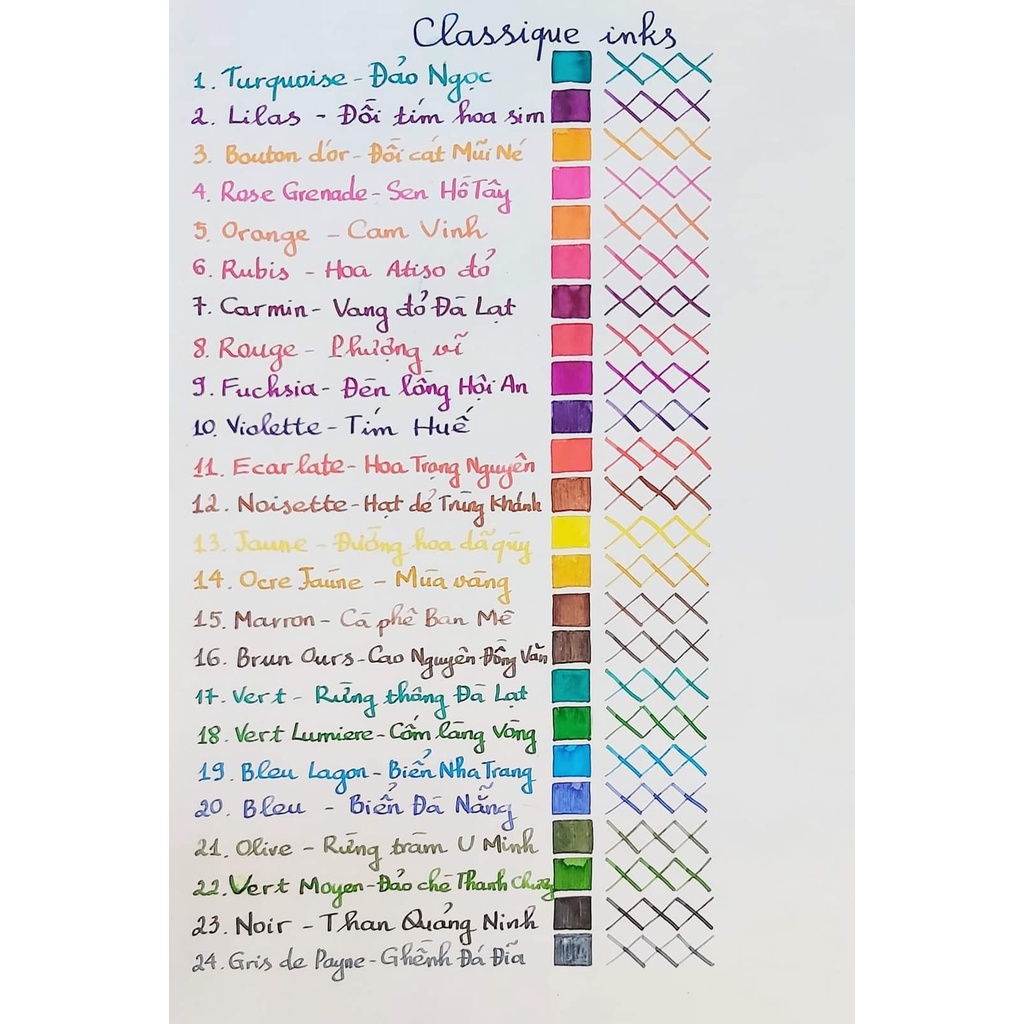 Classique inks
1. Turquoise - Đảo Ngọc
2. Lilas - Đồi tím hoa sim
3. Bouton d'or - Đồi cát Mũi Né
4. Rose Grenade - Sen Hồ Tây
5. Orange - Cam Vinh
6. Rubis - Hoa Atiso đỏ
7. Carmin - Vang đỏ Đà Lạt
8. Rouge - Phượng vĩ
9. Fuchsia - Đèn lồng Hội An
10. Violette - Tím Huế
11. Ecarlate - Hoa Trạng Nguyên
12. Noisette - Hạt dẻ Trùng Khánh
13. Jaune - Đường hoa dã quỳ
14. Ocre Jaune - Mùa vàng
15. Marron - Cà phê Ban Mê
16. Brun Ours - Cao Nguyên Đồng Văn
17. Vert - Rừng thông Đà Lạt
18. Vert Lumiere - Cốm làng Vòng
19. Bleu Lagon - Biển Nha Trang
20. Bleu - Biển Đà Nẵng
21. Olive - Rừng tràm U Minh
22. Vert Moyen - Đảo chè Thanh Chương
23. Noir - Than Quảng Ninh
24. Gris de Payne - Ghềnh Đá Đĩa